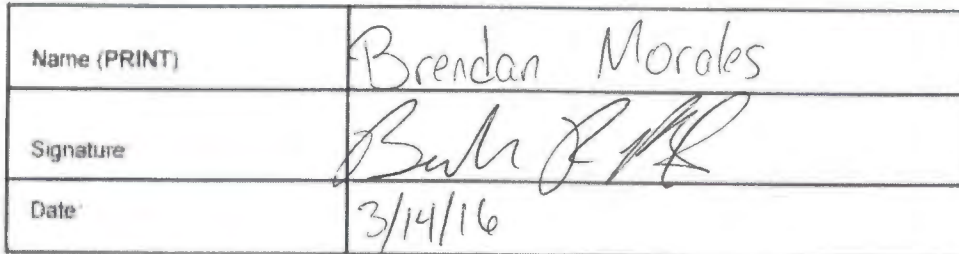 Name (PRINT) Brendan Morales
Signature
Date 3/14/16